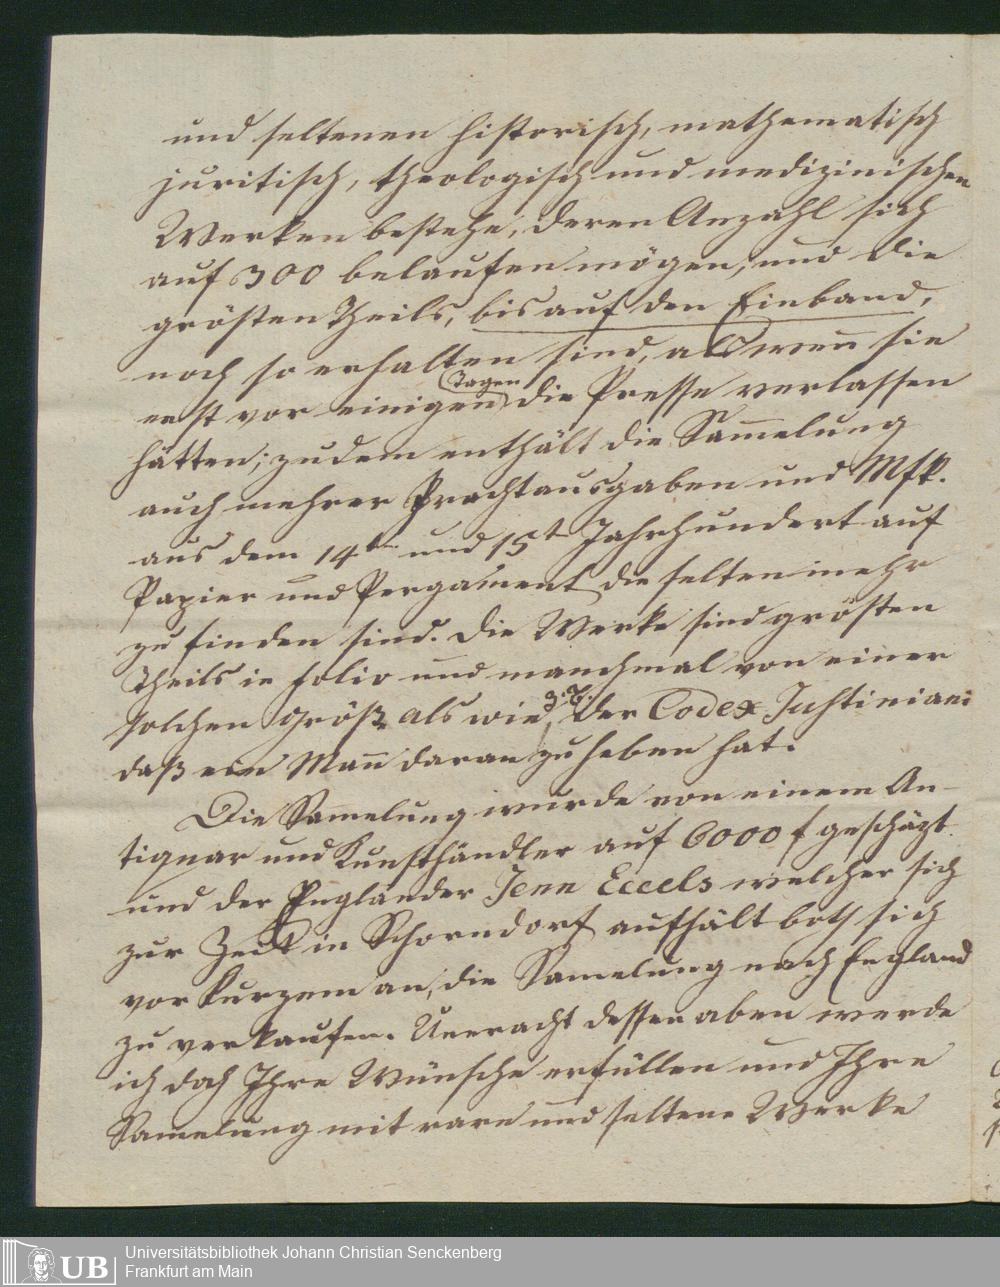 und seltenen historisch, mathematisch
juritisch, theologisch und medizinischen
Werken bestehe, deren Anzahl sich
auf 300 belaufen mögen, und die
grösten Theils, bis auf den Einband,
noch so erhalten sind, als wen̅ sie
erst vor einigen Tagen die Presse verlassen
hätten; zudem enthält die Sam̅elung
auch mehrer Prachtausgaben und Mss.
aus dem 14t und 15t Jahrhundert auf
Papier und Pergament die selten mehr
zu finden sind. Die Werke sind grösten
Theils in folio und manchmal von einer
solchen Größe als wie z. B. der Codex Justiniani
daß ein Man̅ daran zu heben hat.
Die Sam̅elung wurde von einem An-
tiquar und Kunsthändler auf 6000 f geschäzt
und der Engländer Jenn Eccels welcher sich
zur Zeit in Schorndorf aufhält both sich
vor kurzem an, die Sam̅elung nach England
zu verkaufen. Uneracht dessen aben werde
ich doch Ihre Wünsche erfüllen und Ihre
Sam̅elung mit rare und seltene Werke
UB
Universitätsbibliothek Johann Christian Senckenberg
Frankfurt am Main